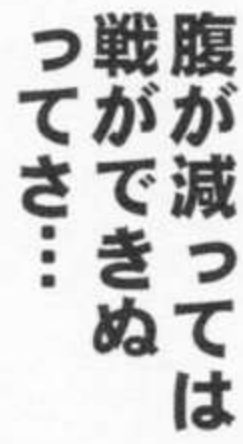 腹が減っては
戦ができぬ
ってさ…